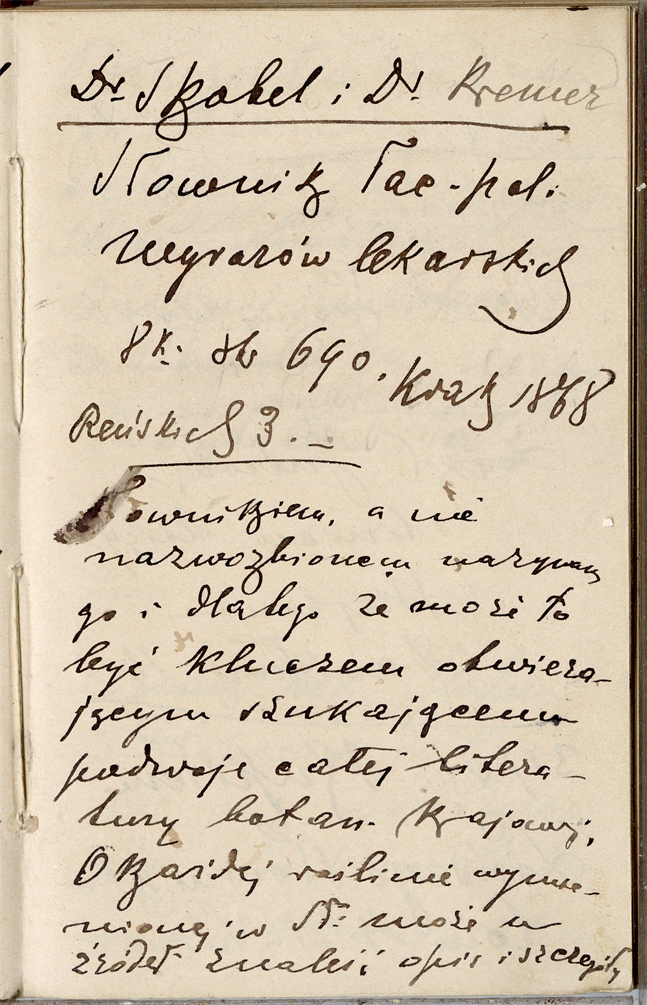 Dr. Skobel i Dr. Kremer
Słownik łac.-pol.
wyrazów lekarskich
8k. str 690. Krak 1868
Reńskich 3.—
Słownikiem, a nie
nazwozbiorem nazywam
go i dlatego że może to
być kluczem otwiera-
jącym szukającemu
podwoje całej litera-
tury botan. krajowej.
O każdej roślinie wymie-
nionej w Sł: może w
źródeł znaleść opis i szczegóły